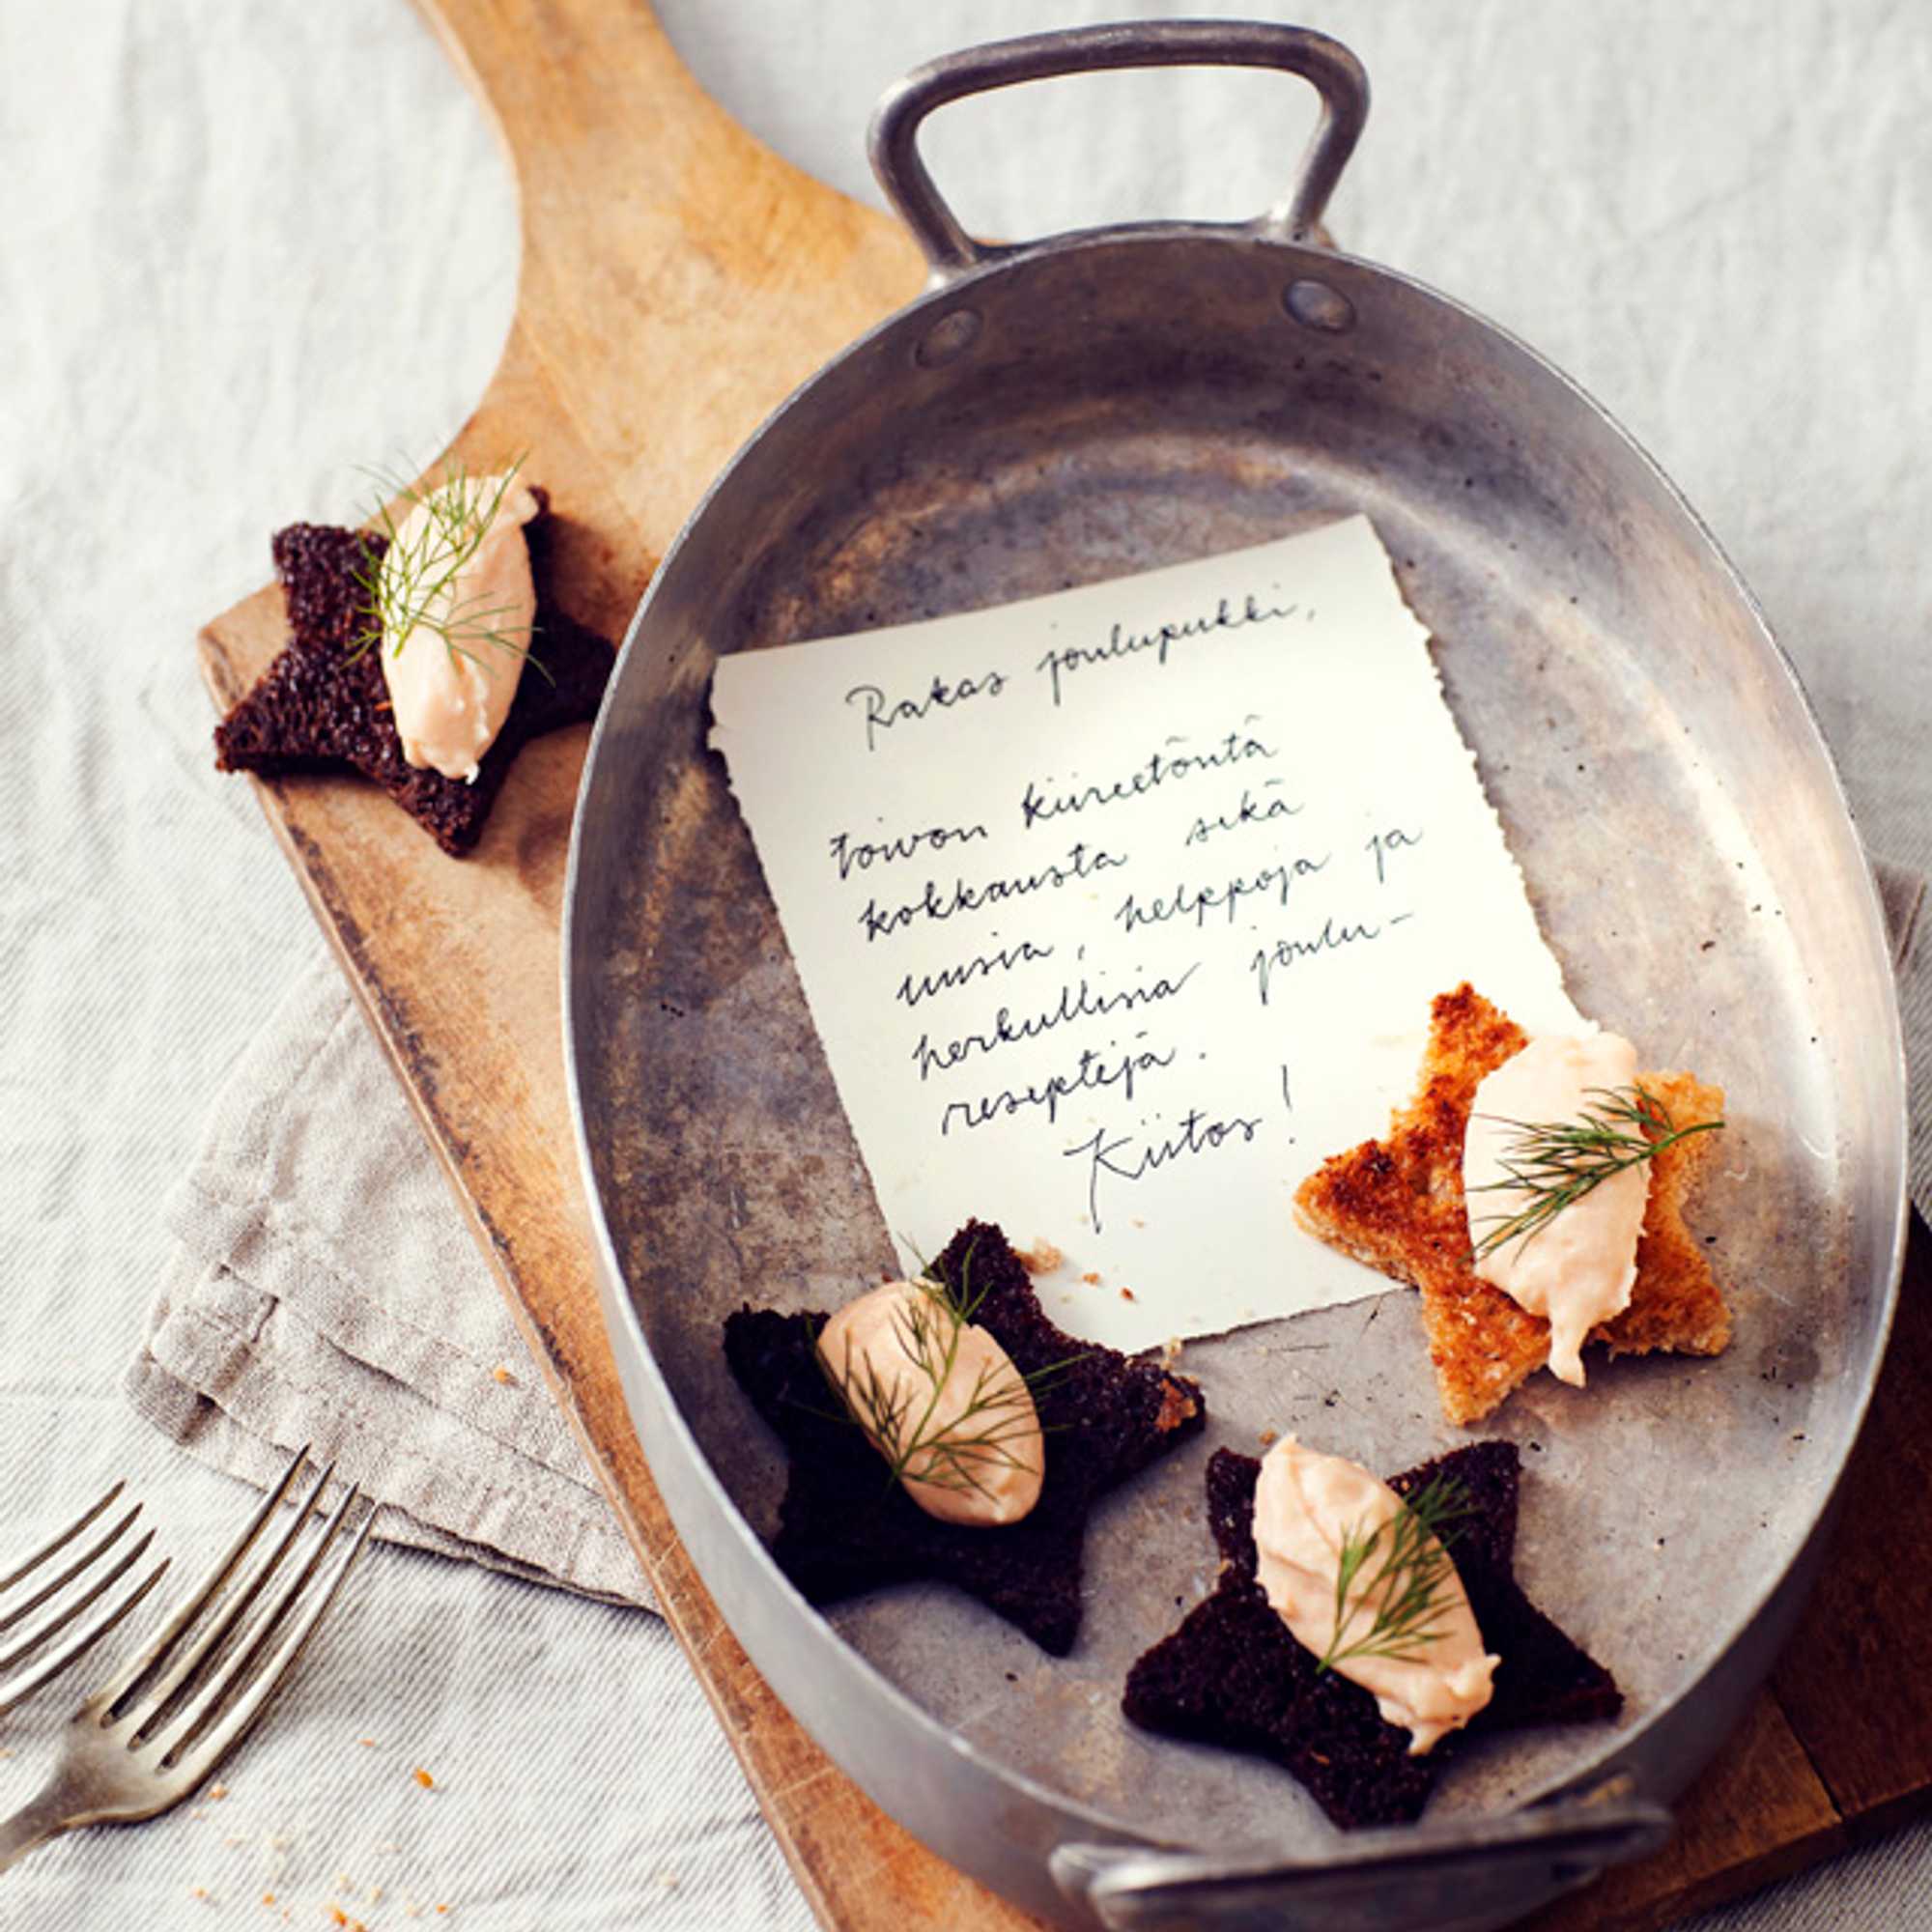 Rakas joulupukki,
toivon kiireetöntä
kokkausta sekä
uusia, helppoja ja
herkullisia joulu-
reseptejä.
Kiitos!